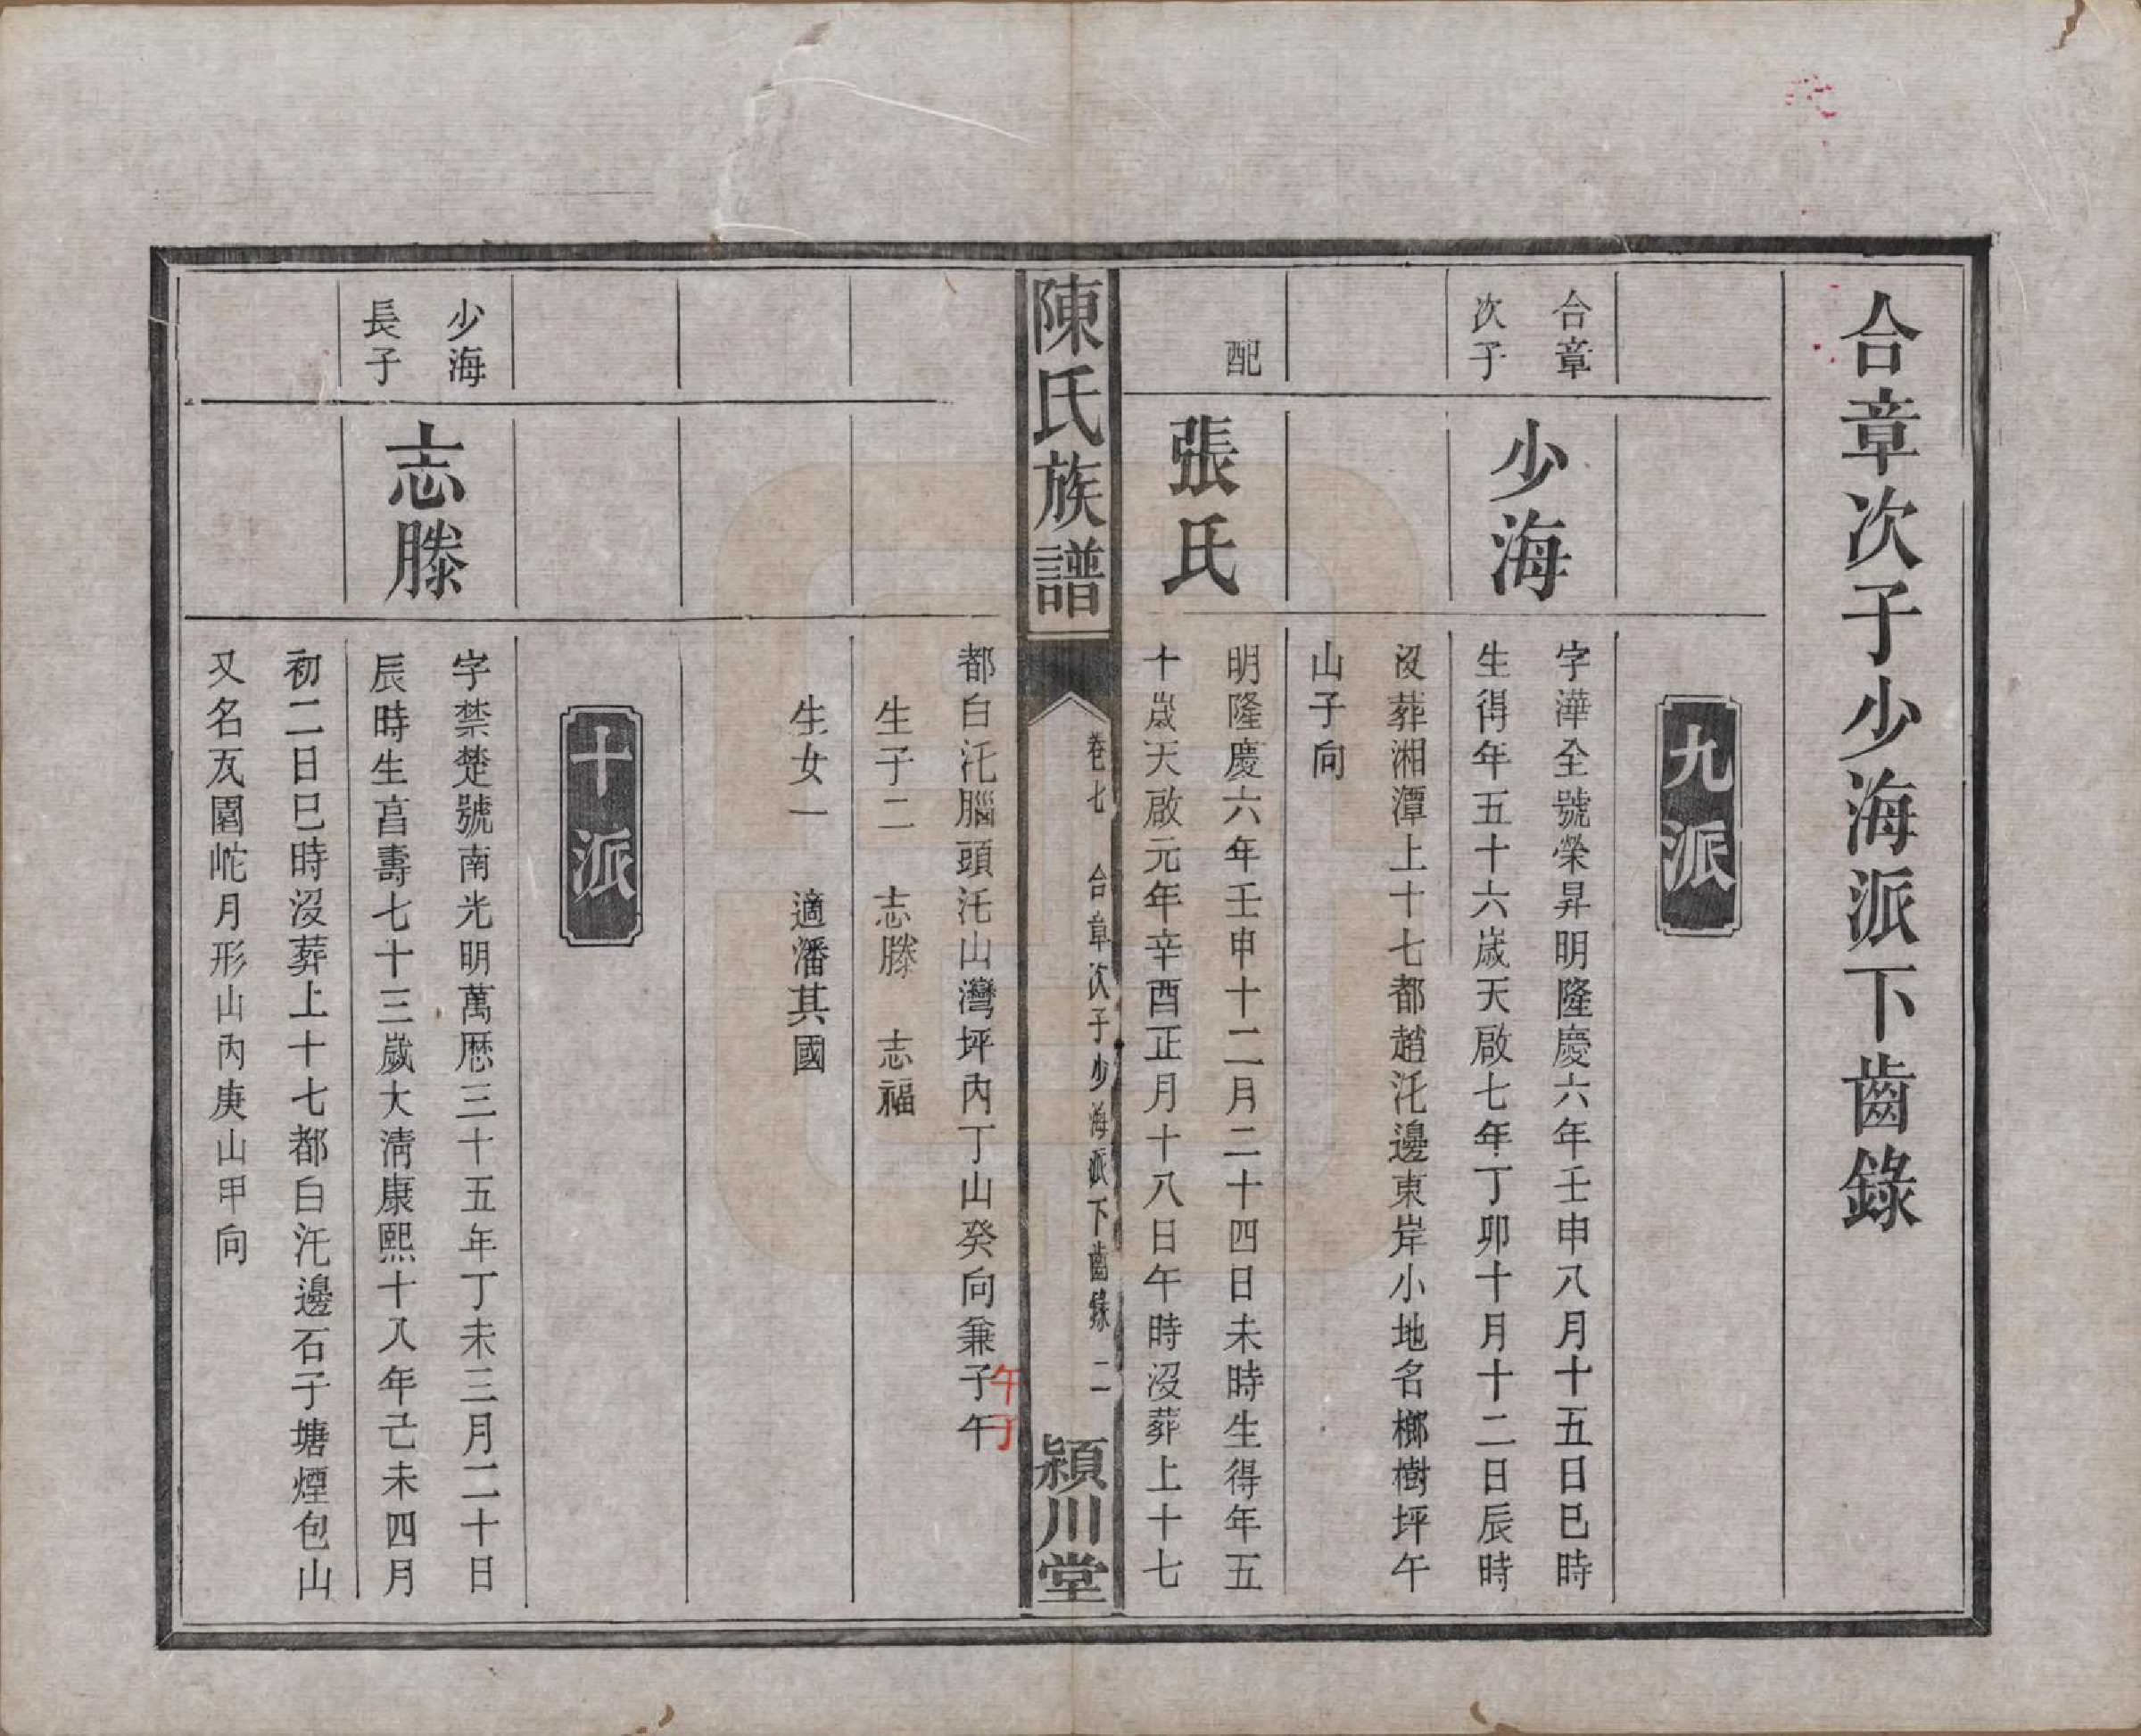 合章次子少海派下齒錄
九派
合章
次子
少海
字澕全號榮昇明隆慶六年壬申八月十五日巳時
生得年五十六歲天啟七年丁卯十月十二日辰時
沒葬湘潭上十七都趙汑邊東岸小地名榔樹坪午
山子向
配
張氏
明隆慶六年壬申十二月二十四日未時生得年五
十歲天啟元年辛酉正月十八日午時沒葬上十七
陳氏族譜
卷七 合章次子少海派下齒錄 二
潁川堂
都白汑腦頭汑山灣坪內丁山癸向兼子午
午丁
生子二 志滕 志福
生女一 適潘其國
十派
少海
長子
志滕
字禁楚號南光明萬厯三十五年丁未三月二十日
辰時生亯壽七十三歲大清康熙十八年己未四月
初二日巳時沒葬上十七都白汑邊石子塘煙包山
又名瓦園岮月形山內庚山甲向